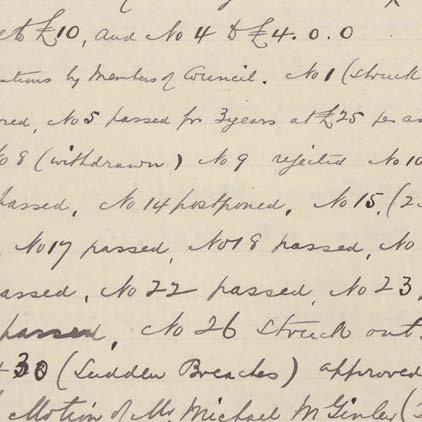 to £10, and No 4 to £4.0.0
by Members of Council. No 1 (struck
No 5 passed for 3 years at £25 per an
No 8 (withdrawn) No 9 rejected No 10
passed, No 14 postponed, No 15. (2
No 17 passed, No 18 passed, No
passed, No 22 passed, No 23,
passed, No 26 struck out.
30 (Sudden Breaches) approved
Motion of Mr. Michael McGinley (